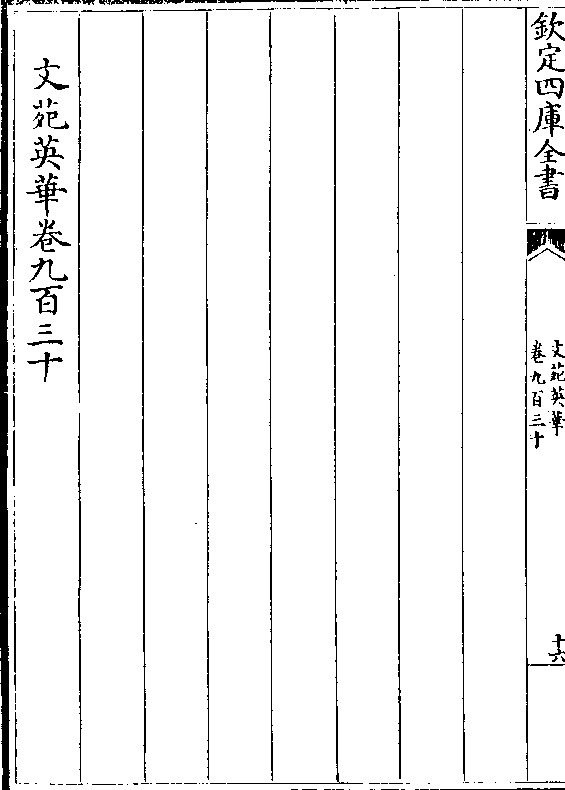 欽定四庫全書
文苑英華
卷九百三十
十六
文苑英華卷九百三十